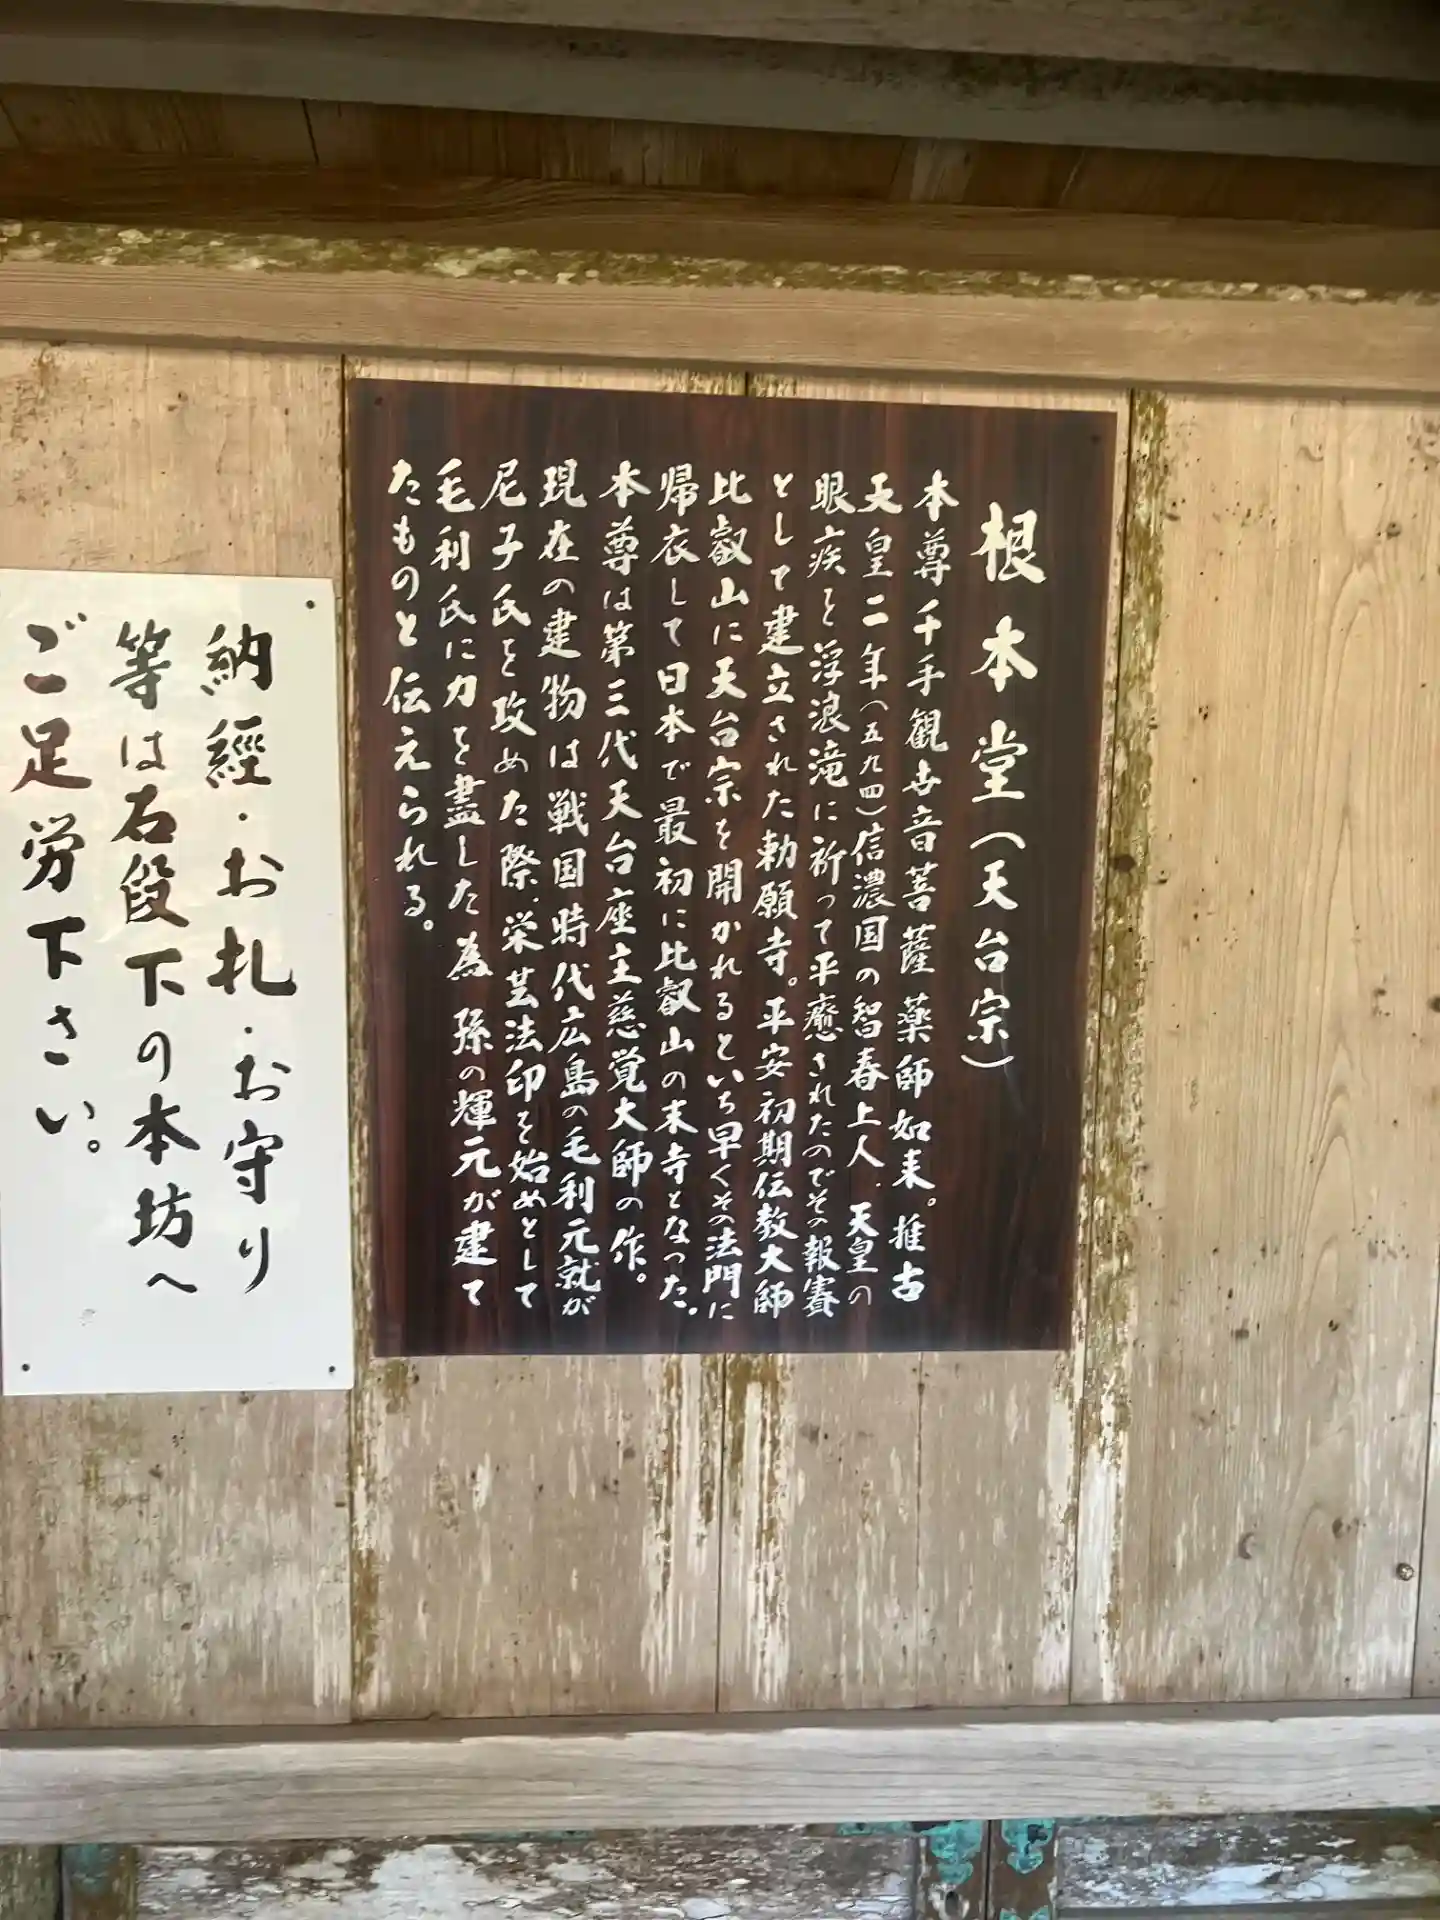 根本堂（天台宗）
本尊千手観世音菩薩 薬師如来。推古
天皇二年（五九四）信濃国の智春上人、天皇の
眼疾を浮浪滝に祈って平癒されたのでその報賽
として建立された勅願寺。平安初期伝教大師
比叡山に天台宗を開かれるといち早くその法門に
帰衣して日本で最初に比叡山の末寺となった。
本尊は第三代天台座主慈覚大師の作。
現在の建物は戦国時代広島の毛利元就が
尼子氏を攻めた際、栄芸法印を始めとして
毛利氏に力を盡した為 孫の輝元が建て
たものと伝えられる。
納經・お札・お守り
等は石段下の本坊へ
ご足労下さい。